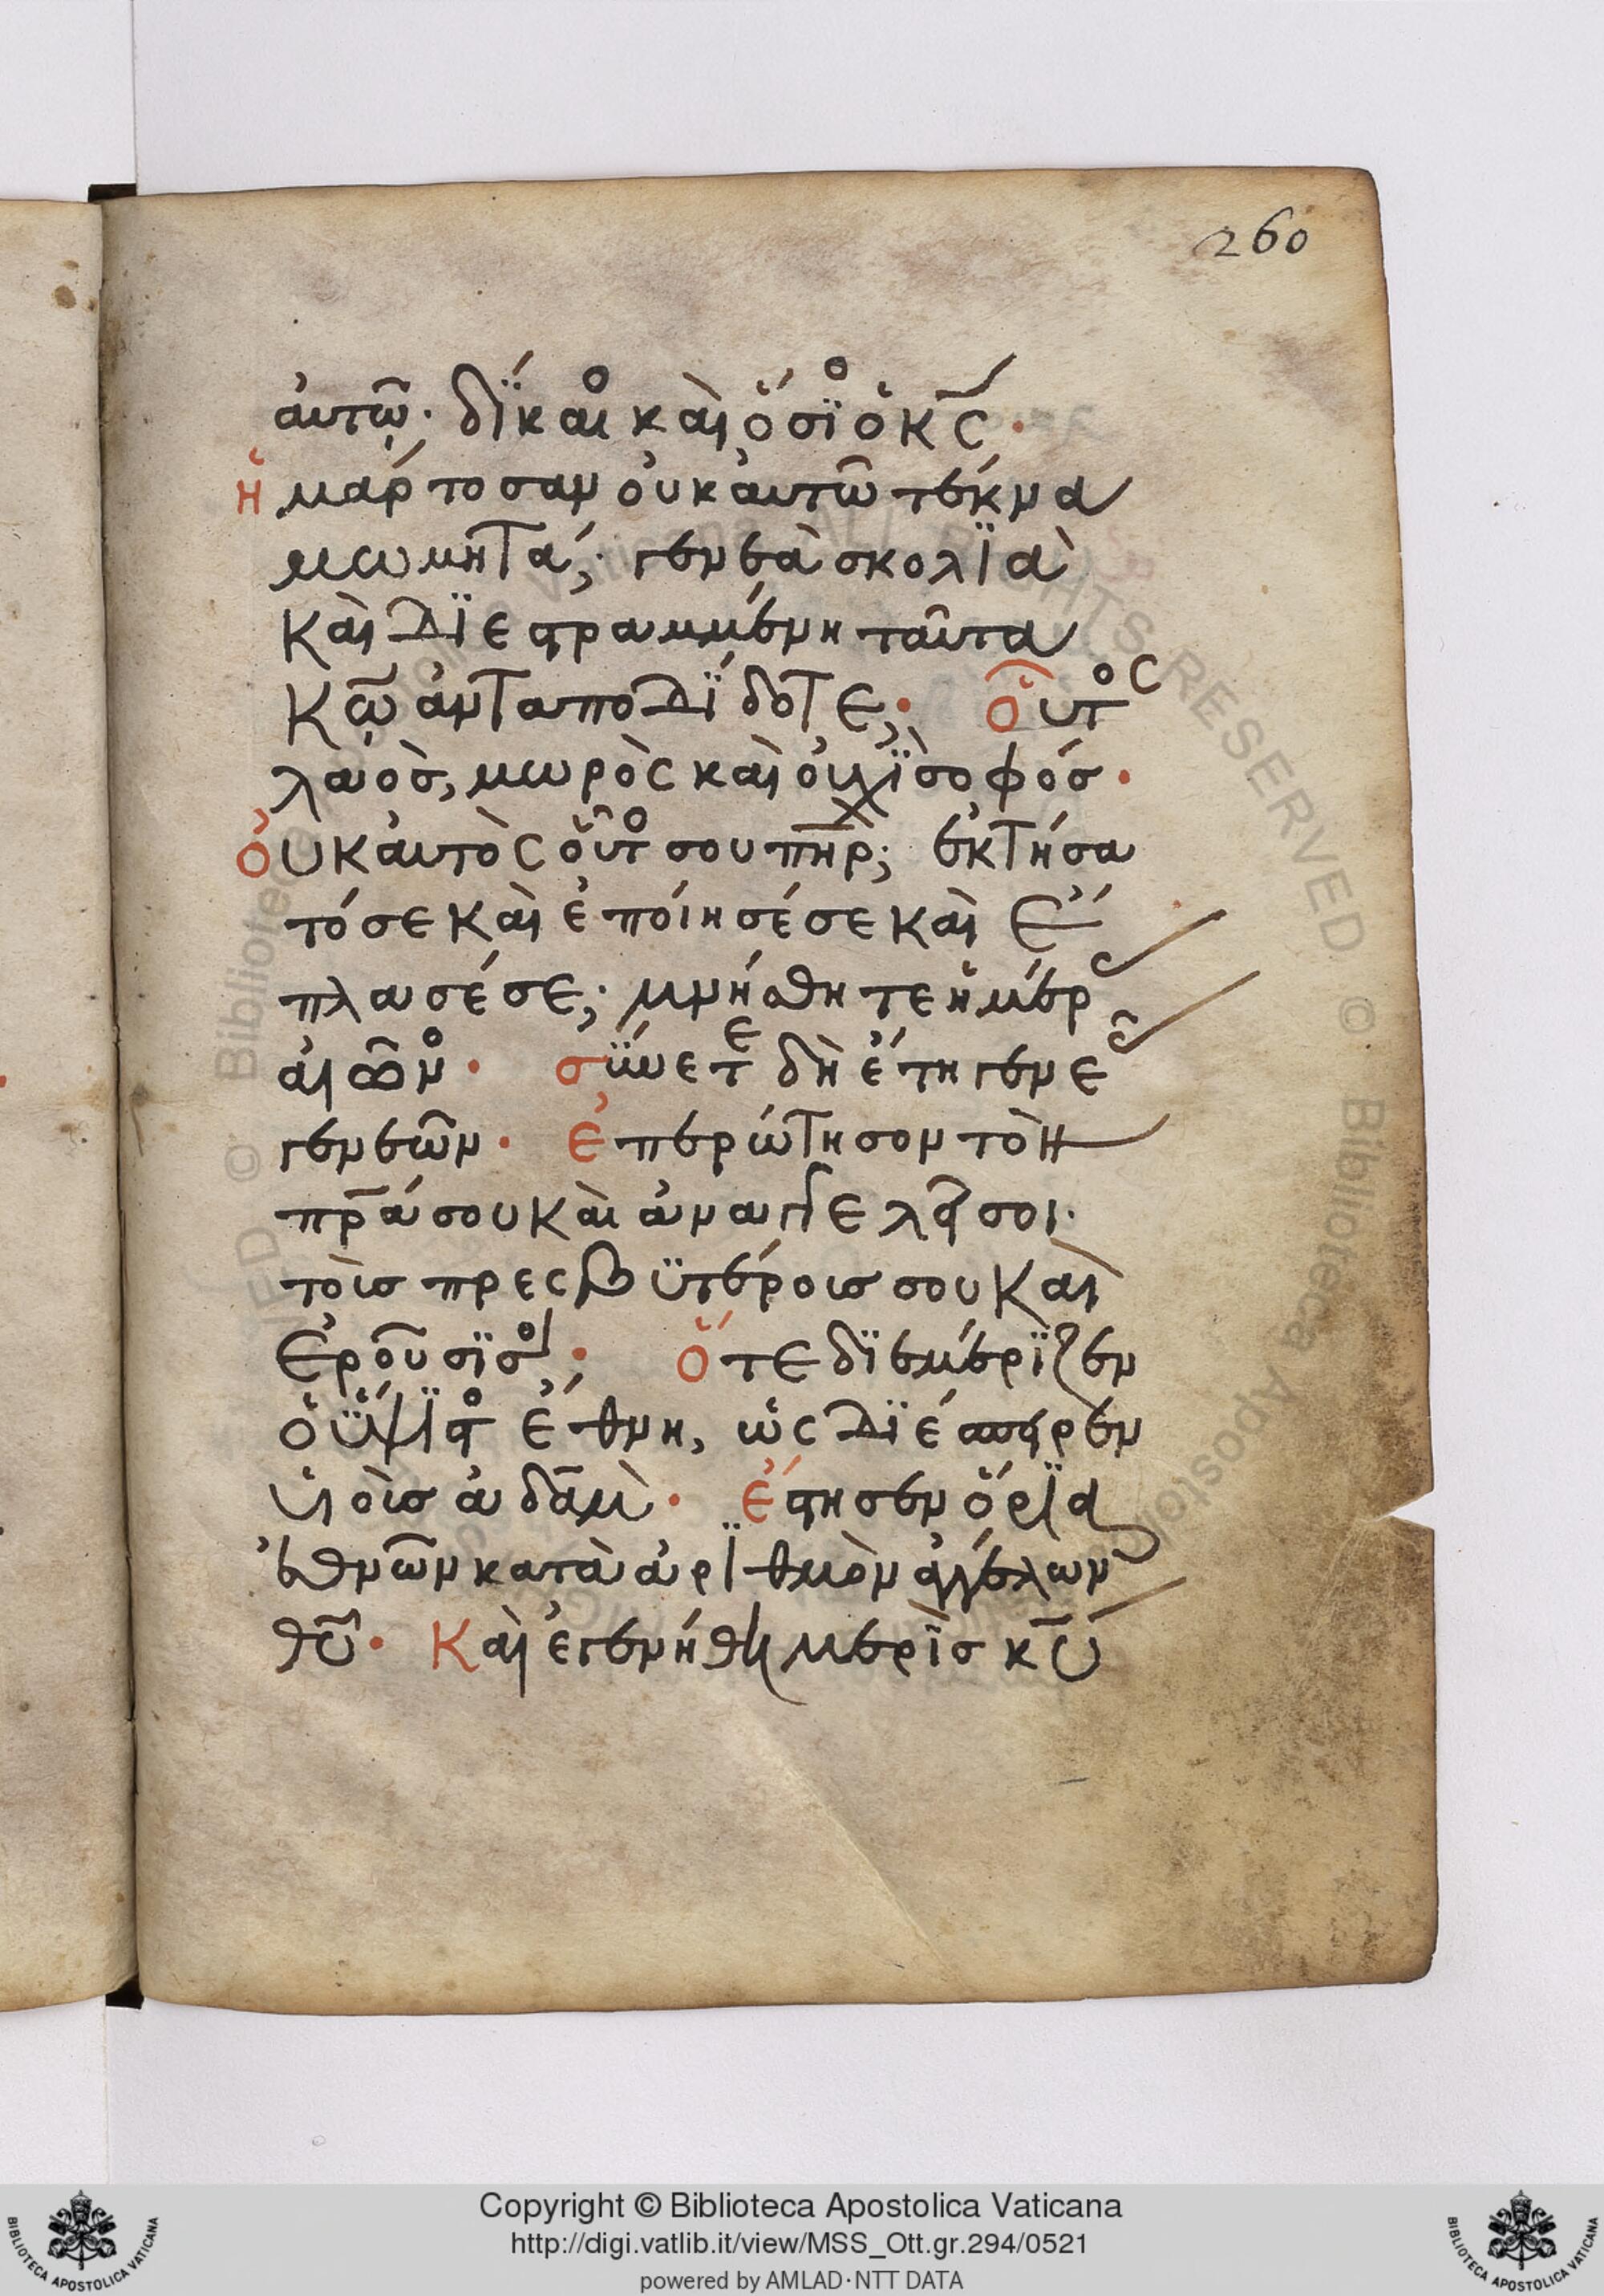 260
ἀυτῶ· δΐκαι καὶ ὅσϊ ὁ κς·
ἡμάρτοσαν ὀυκ ἀυτῶ τέκνα
μωμητά; γενεὰ σκολϊὰ
καὶ διεστραμμένη ταῦτα
κῶ ἀνταποδίδοτε; ὁῦτος
λαὸσ, μωρὸς καὶ ὀυχὶ σοφόσ·
Ὀυκ ἀυτὸς ὁῦτο σου πηρ; ἐκτήσα
τό σε καὶ ἐποίησέ σε καὶ ἔ
πλασέ σε; μνήσθητε ἡμέρας
ἀιῶνο· σΰνετε δὴ ἔτη γενεᾶς
γενεῶν· ἐπερώτησον τὸν
πρα σου καὶ ἀναγγελεῖ σοι·
τοὶσ πρεσβϋτέροισ σου καὶ
ἐροῦσϊ σοι; ὅτε διεμέρϊζεν
ὁ ὕψϊστο ἔθνη, ὡς διέσπειρεν
υἱοὶσ ἀδάμ· ἔστησεν ὅρϊα
ἐθνῶν κατὰ ἀρϊθμὸν ἀγγέλων
θυ· Καὶ ἐγενήθη μερὶσ κυ
Copyright © Biblioteca Apostolica Vaticana
http://digi.vatlib.it/view/MSS_Ott.gr.294/0521
powered by AMLAD·NTT DATA
BIBLIOTECA APOSTOLICA VATICANA
BIBLIOTECA APOSTOLICA VATICANA